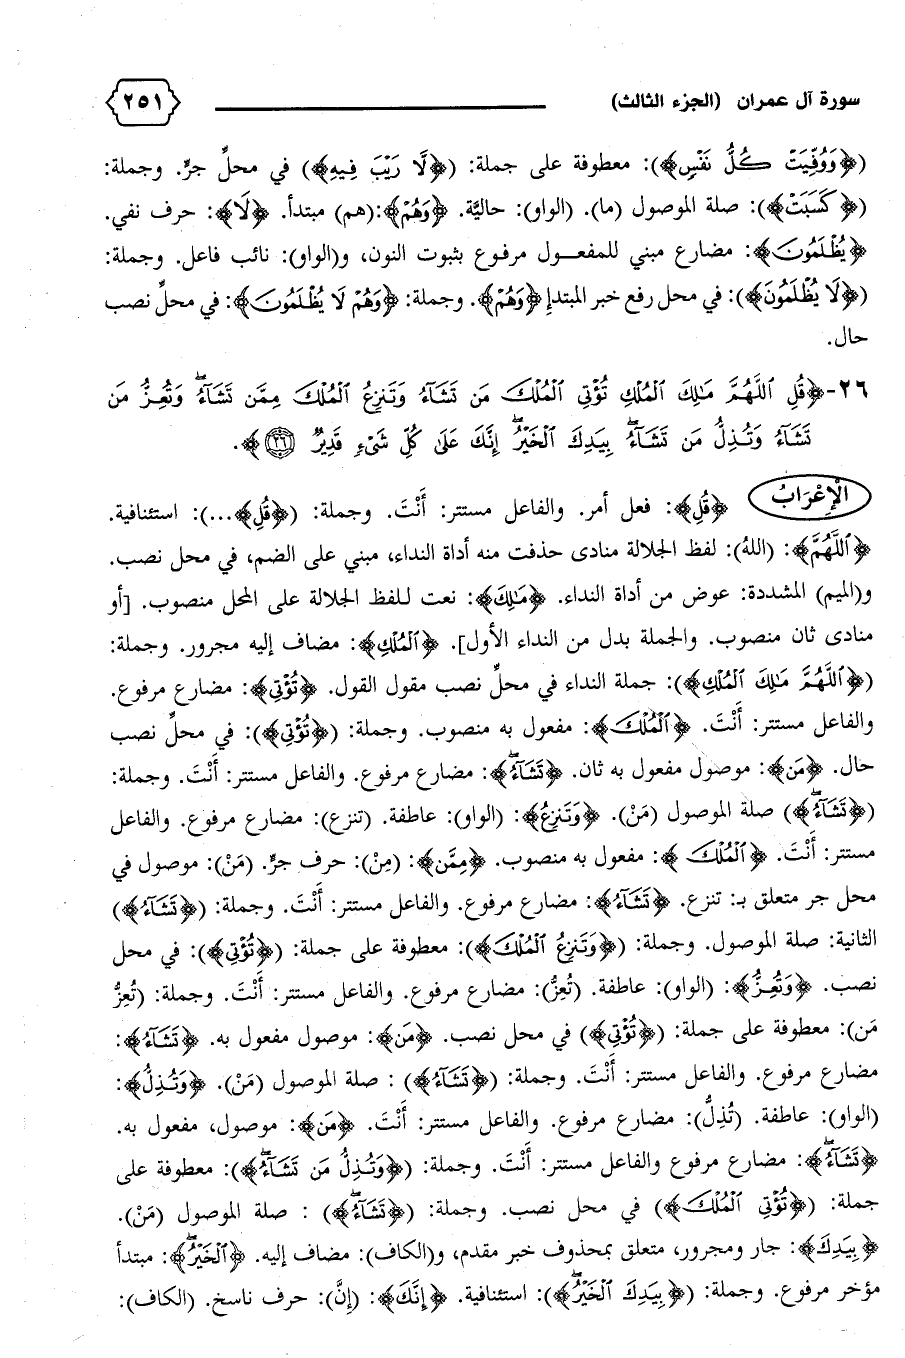 سورة آل عمران (الجزء الثالث) ٢٥١
(﴿وَوُفِّيَتْ كُلُّ نَفْسٍ﴾): معطوفة على جملة: (﴿لَّا رَيْبَ فِيهِ﴾) في محلِّ جرٍّ. وجملة:
(﴿كَسَبَتْ﴾): صلة الموصول (ما). (الواو): حاليَّة. ﴿وَهُمْ﴾:(هم) مبتدأ. ﴿لَا﴾: حرف نفي.
﴿يُظْلَمُونَ﴾: مضارع مبني للمفعول مرفوع بثبوت النون، و(الواو): نائب فاعل. وجملة:
(﴿لَا يُظْلَمُونَ﴾): في محل رفع خبر المبتدإ ﴿وَهُمْ﴾. وجملة: ﴿وَهُمْ لَا يُظْلَمُونَ﴾: في محلِّ نصب
حال.
٢٦-﴿قُلِ ٱللَّهُمَّ مَٰلِكَ ٱلْمُلْكِ تُؤْتِي ٱلْمُلْكَ مَن تَشَآءُ وَتَنزِعُ ٱلْمُلْكَ مِمَّن تَشَآءُ ۖ وَتُعِزُّ مَن
تَشَآءُ وَتُذِلُّ مَن تَشَآءُ ۖ بِيَدِكَ ٱلْخَيْرُ ۖ إِنَّكَ عَلَىٰ كُلِّ شَىْءٍ قَدِيرٌ ٢٦﴾.
الْإِعْرَابُ ﴿قُلِ﴾: فعل أمر. والفاعل مستتر: أَنْتَ. وجملة: (﴿قُلِ﴾...): استئنافية.
﴿ٱللَّهُمَّ﴾: (اللهُ): لفظ الجلالة منادى حذفت منه أداة النداء، مبني على الضم، في محل نصب.
و(الميم) المشددة: عوض من أداة النداء. ﴿مَٰلِكَ﴾: نعت للفظ الجلالة على المحل منصوب. [أو
منادى ثان منصوب. والجملة بدل من النداء الأول]. ﴿ٱلْمُلْكِ﴾: مضاف إليه مجرور. وجملة:
(﴿ٱللَّهُمَّ مَٰلِكَ ٱلْمُلْكِ﴾): جملة النداء في محلِّ نصب مقول القول. ﴿تُؤْتِي﴾: مضارع مرفوع.
والفاعل مستتر: أَنْتَ. ﴿ٱلْمُلْكَ﴾: مفعول به منصوب. وجملة: (﴿تُؤْتِي﴾): في محلِّ نصب
حال. ﴿مَن﴾: موصول مفعول به ثان. ﴿تَشَآءُ ۖ﴾: مضارع مرفوع. والفاعل مستتر: أَنْتَ. وجملة:
(﴿تَشَآءُ ۖ﴾) صلة الموصول (مَنْ). ﴿وَتَنزِعُ﴾: (الواو): عاطفة. (تنزع): مضارع مرفوع. والفاعل
مستتر: أَنْتَ. ﴿ٱلْمُلْكَ﴾: مفعول به منصوب. ﴿مِمَّن﴾: (مِنْ): حرف جرٍّ. (مَنْ): موصول في
محل جر متعلق بـ: تنزع. ﴿تَشَآءُ﴾: مضارع مرفوع. والفاعل مستتر: أَنْتَ. وجملة: (﴿تَشَآءُ﴾)
الثانية: صلة الموصول. وجملة: (﴿وَتَنزِعُ ٱلْمُلْكَ﴾): معطوفة على جملة: (﴿تُؤْتِي﴾): في محل
نصب. ﴿وَتُعِزُّ﴾: (الواو): عاطفة. (تُعِزُّ): مضارع مرفوع. والفاعل مستتر: أَنْتَ. وجملة: (تُعِزُّ
مَن): معطوفة على جملة: (﴿تُؤْتِي﴾) في محل نصب. ﴿مَن﴾: موصول مفعول به. ﴿تَشَآءُ﴾:
مضارع مرفوع. والفاعل مستتر: أَنْتَ. وجملة: (﴿تَشَآءُ﴾) : صلة الموصول (مَنْ). ﴿وَتُذِلُّ﴾:
(الواو): عاطفة. (تُذِلُّ): مضارع مرفوع. والفاعل مستتر: أَنْتَ. ﴿مَن﴾: موصول، مفعول به.
﴿تَشَآءُ ۖ﴾: مضارع مرفوع والفاعل مستتر: أَنْتَ. وجملة: (﴿وَتُذِلُّ مَن تَشَآءُ ۖ﴾): معطوفة على
جملة: (﴿تُؤْتِي ٱلْمُلْكَ﴾) في محل نصب. وجملة: (﴿تَشَآءُ ۖ﴾) : صلة الموصول (مَنْ).
﴿بِيَدِكَ﴾: جار ومجرور، متعلق بمحذوف خبر مقدم، و(الكاف): مضاف إليه. ﴿ٱلْخَيْرُ ۖ﴾: مبتدأ
مؤخر مرفوع. وجملة: (﴿بِيَدِكَ ٱلْخَيْرُ ۖ﴾): استئنافية. ﴿إِنَّكَ﴾: (إِنَّ): حرف ناسخ. (الكاف):